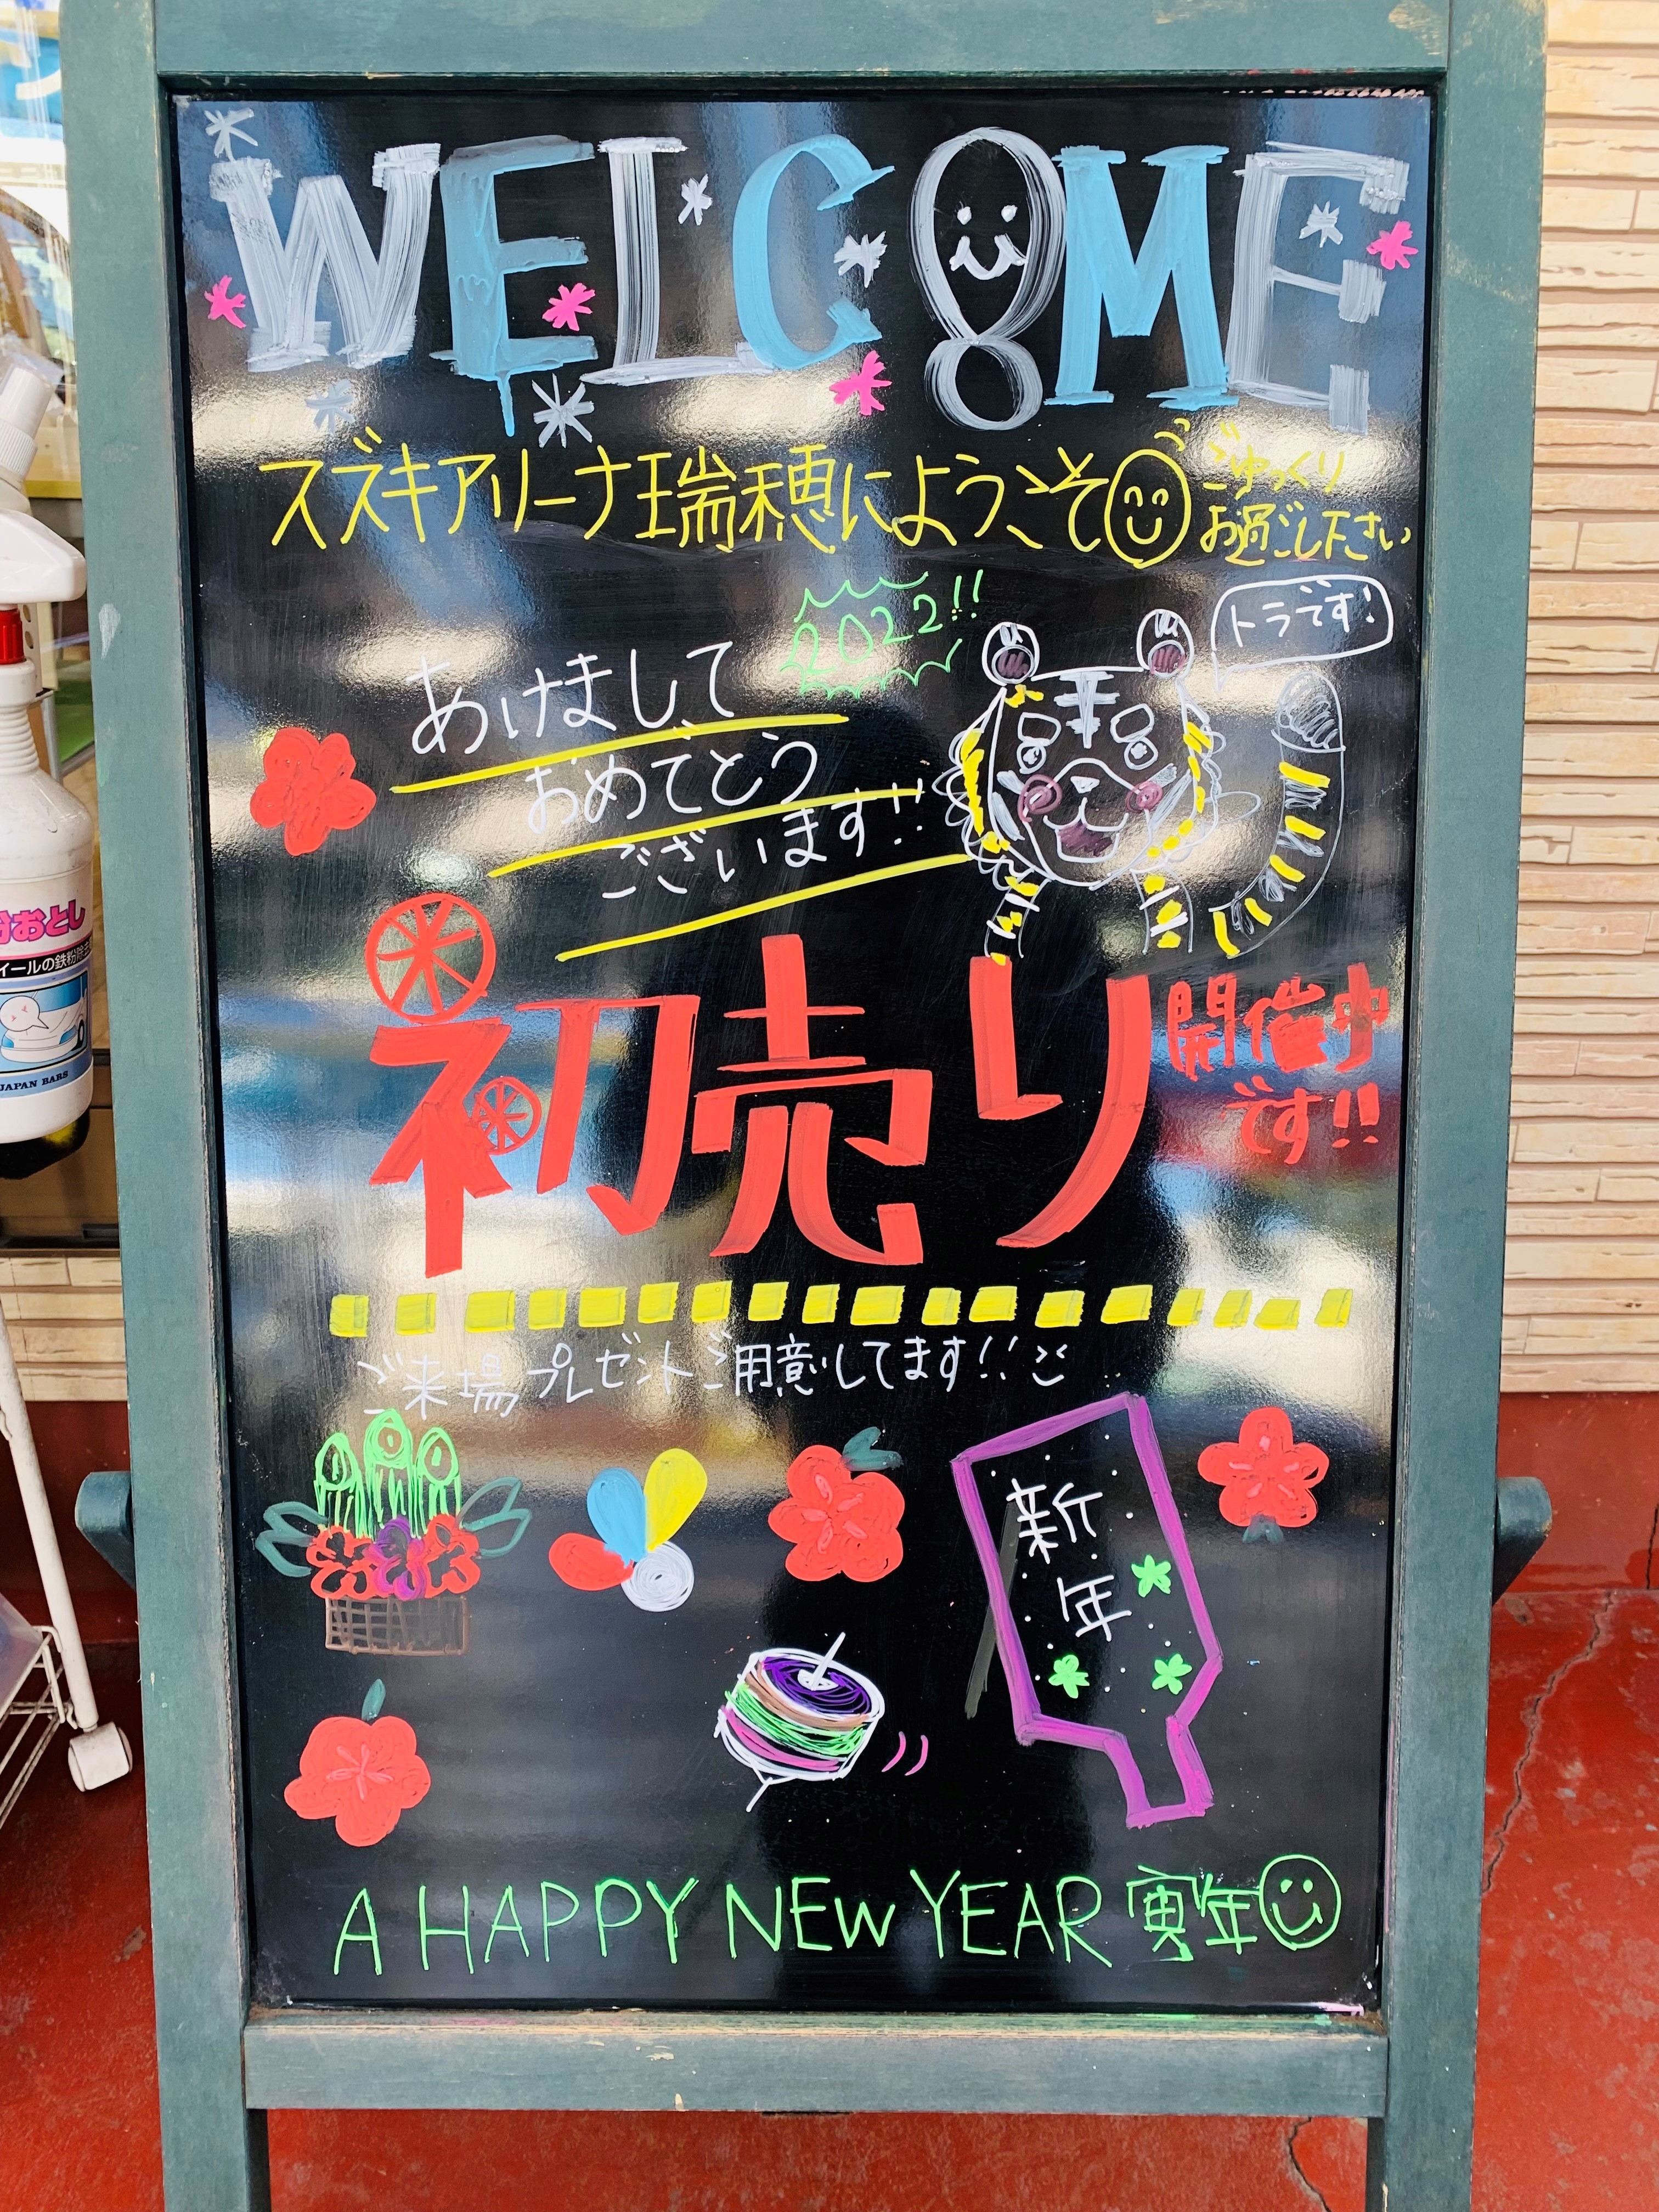 WELCOME
スズキアリーナ瑞穂にようこそ
ごゆっくり
お過ごし下さい
2022!!
トラです!
あけまして
おめでとう
ございます!!
初売り
開催中
です!!
ご来場プレゼントご用意してます!!
新年
A HAPPY NEW YEAR 寅年
粉おとし
イールの鉄粉除去
JAPAN BARS